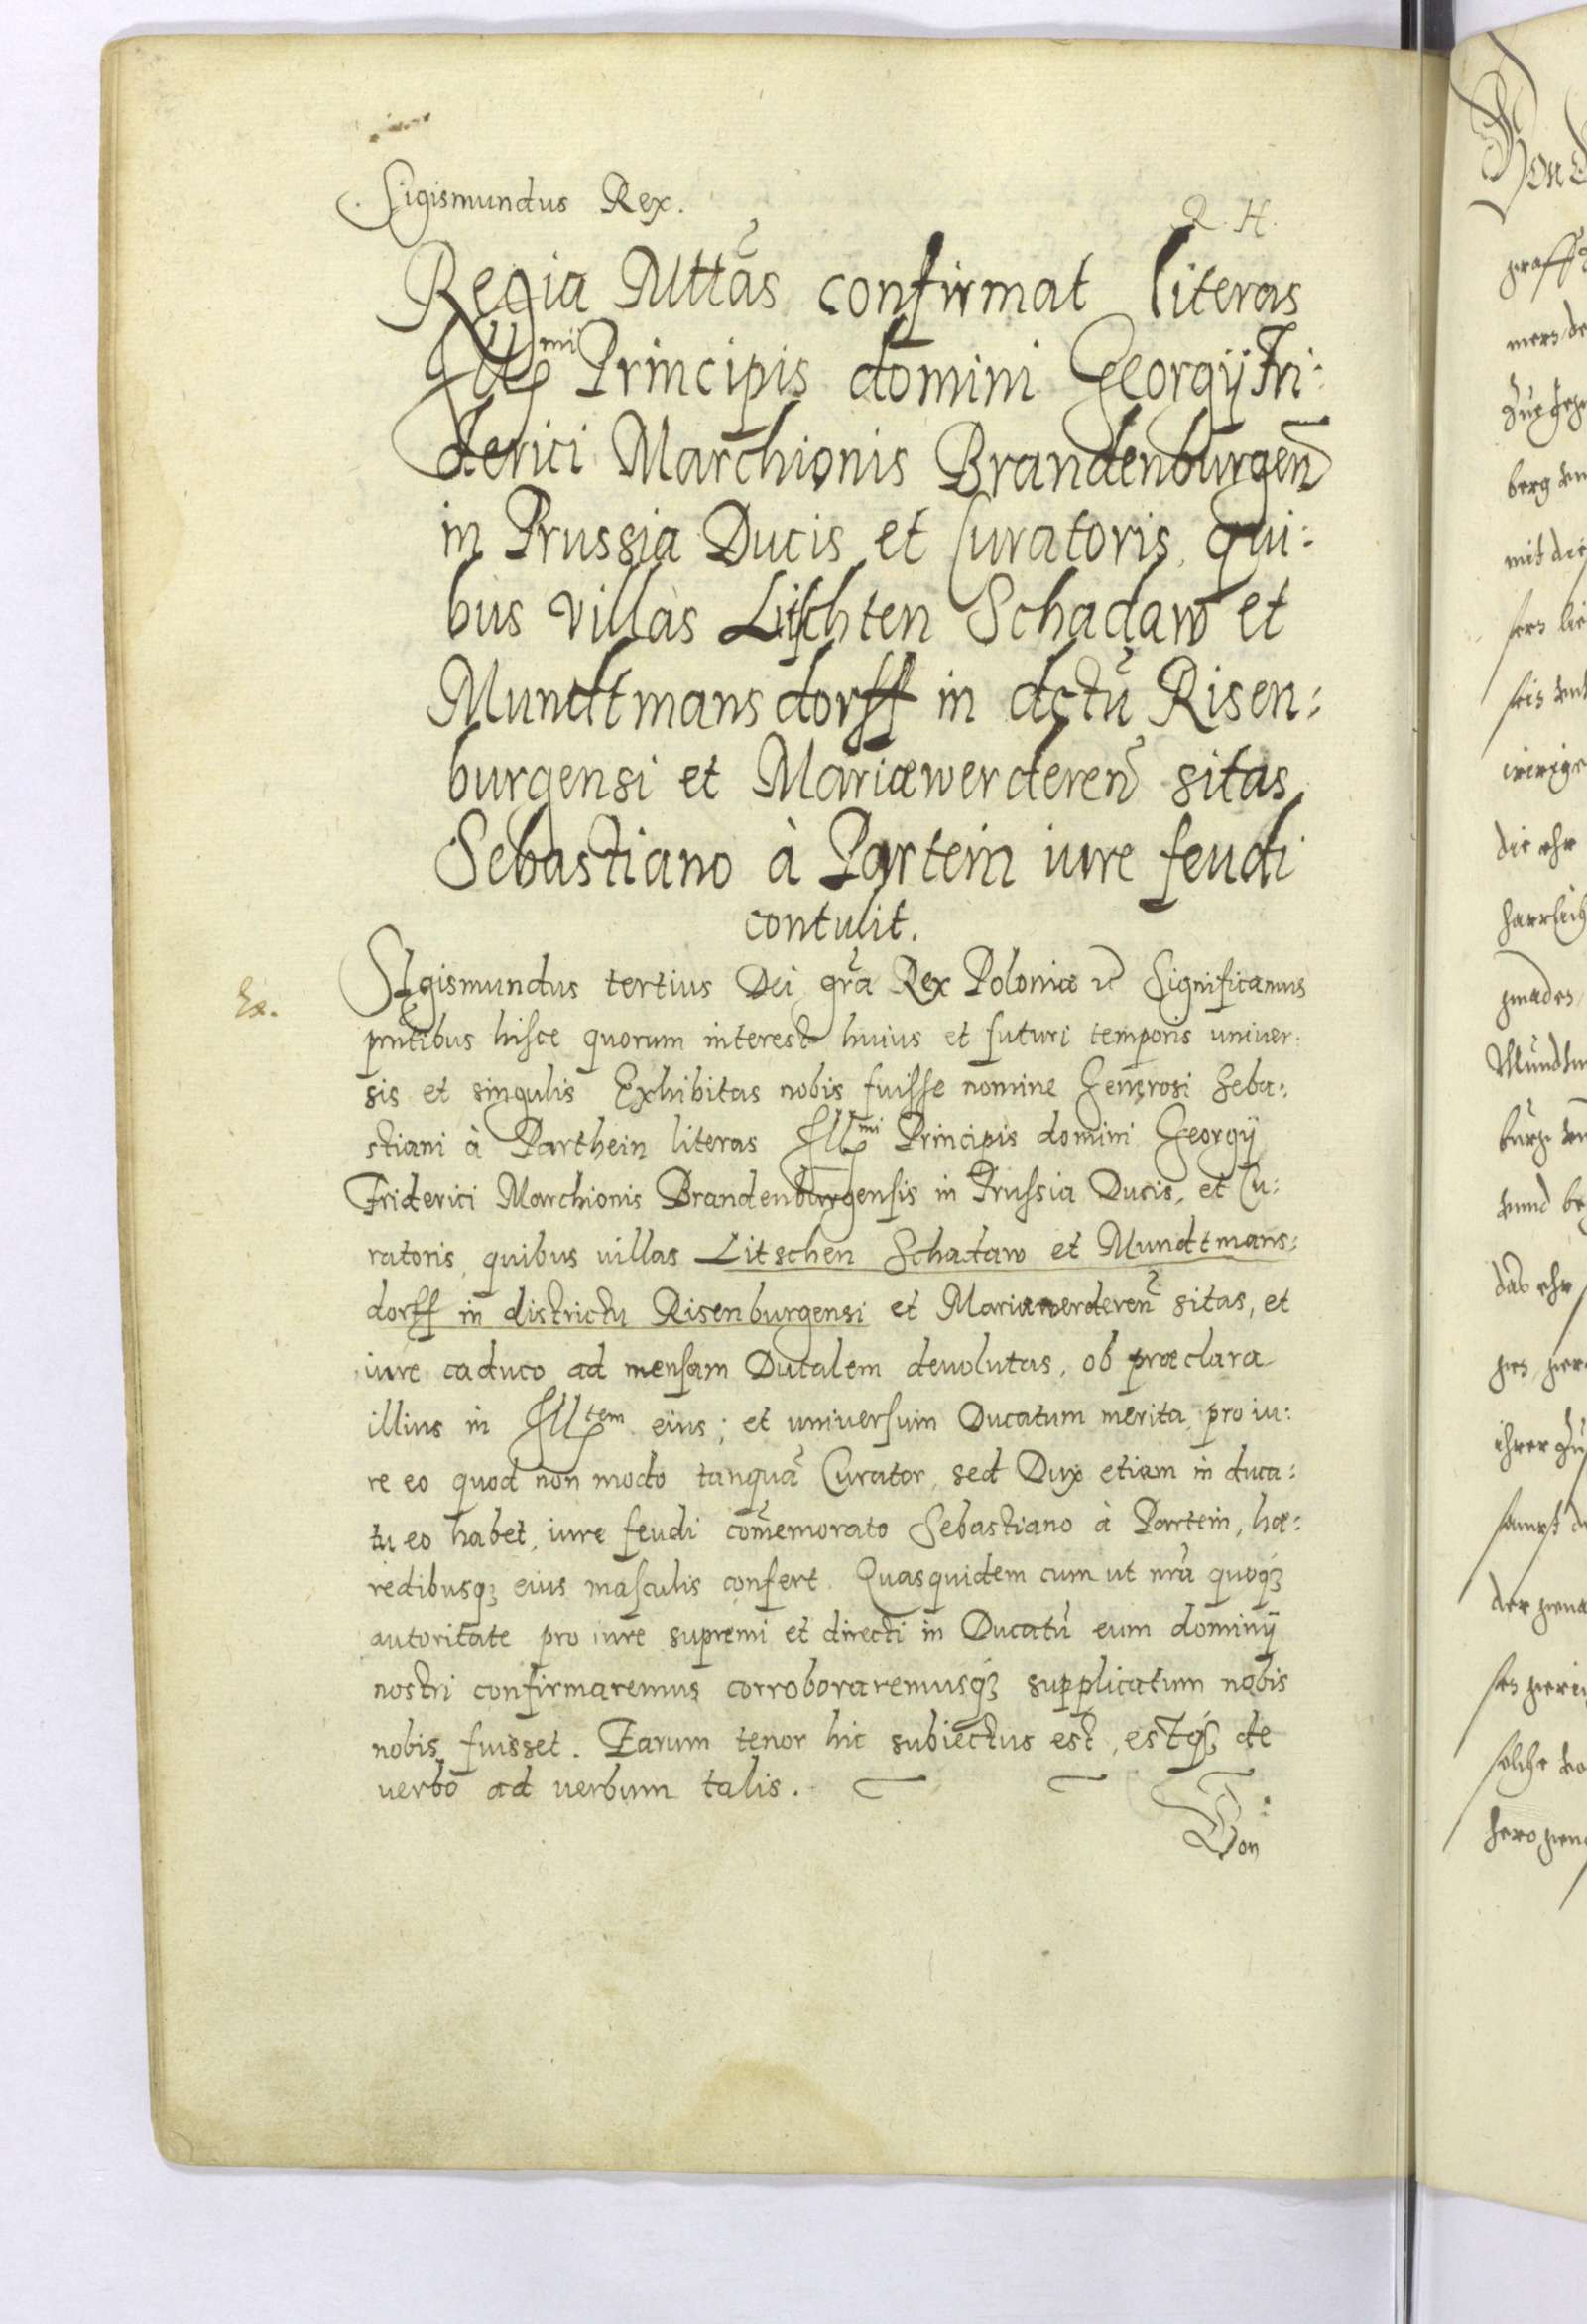 Sigismundus Rex.
R. H.
Regia Mttas confirmat literas
Illmi Principis domini Georgij Fri:
derici Marchionis Brandenburgen
in Prussia Ducis et Curatoris, qui:
bus villas Litschten Schadaw et
Mundtmansdorff in dctũ Risen:
burgensi et Mariæwerderen sitas
Sebastiano à Partein iure feudi
contulit.
Ex.
SIgismundus tertius Dei gra Rex Poloniæ etc Significamus
pntibus hisce quorum interest huius et futuri temporis univer:
sis et singulis Exhibitas nobis fuisse nomine Generosi Seba:
stiani à Parthein literas Illmi Principis domini Georgij
Friderici Marchionis Brandenburgensis in Prussia Ducis, et Cu:
ratoris, quibus villas Litschen Schadaw et Mundtmans:
dorff in districtu Risenburgensi et Mariæwerderen sitas, et
iure caduco ad mensam Ducalem devolutas, ob præclara
illius in Illtem eius; et universum Ducatum merita, pro iu:
re eo quod non modo tanquã Curator, sed Dux etiam in duca:
tu eo habet, iure feudi comemorato Sebastiano à Partein, hæ:
redibusqꝫ eius masculis confert. Quasquidem cum ut nrã quoqꝫ
autoritate pro iure supremi et directi in Ducatũ eum dominij
nostri confirmaremus corroboraremusqꝫ supplicatum nobis
nobis fuisset. Earum tenor hic subiectus est, estqꝫ de
verbo ad verbum talis.
Von